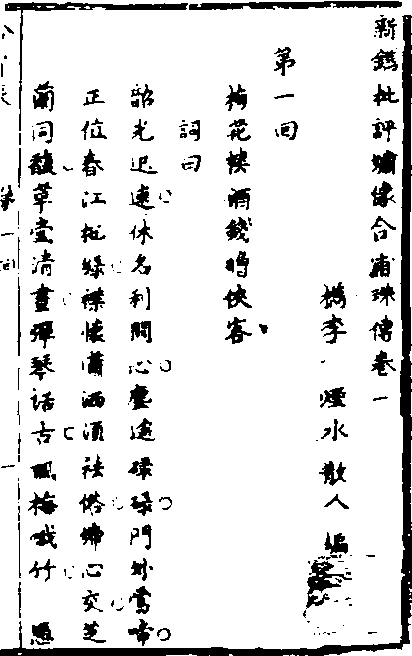 新鐫批評繡像合浦珠傳卷一
檇李 煙水散人 編
第一回
梅花樓酒錢贈俠客
詞曰
韶光迅速休名利關心塵途碌碌門外鶯啼
正位春江 綠襟懷瀟洒須袪俗締心交芝
蘭同馥草堂清晝彈琴話古風梅哦竹
第一回
一